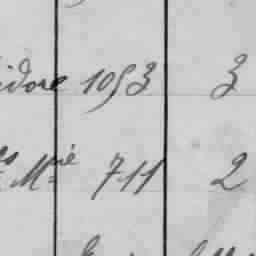 idore 1053 3
es Mie 711 2